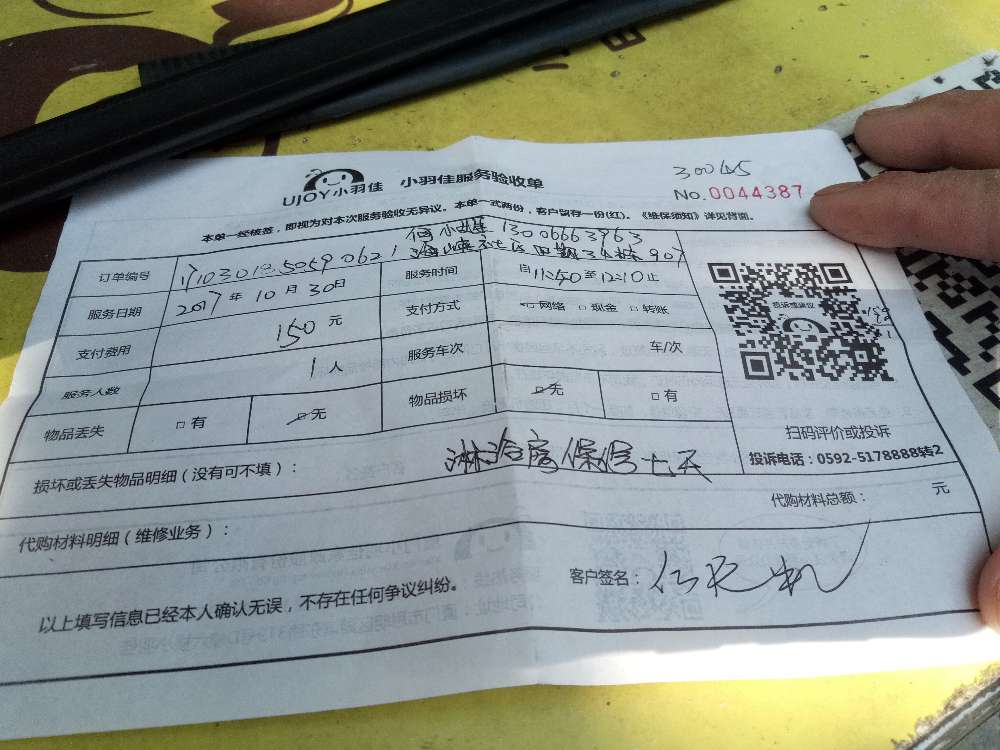 300405
UJOY小羽佳 小羽佳服务验收单
No.0044387
本单一经核签，即视为对本次服务验收无异议。本单一式两份，客户留存一份(红)。《维保须知》详见背面。
何小 13006663963
907
订单编号 1710301850590621 服务时间 自11:40至12:10止
服务日期 2017年10月30日 支付方式 □网络 □现金 □转账
支付费用 150元 服务车次 车/次
服务人数 1人
物品丢失 □有 □无 物品损坏 □无 □有
投诉或建议
扫码评价或投诉
投诉电话：0592-5178888转2
损坏或丢失物品明细（没有可不填）： 淋浴房保修七天
代购材料明细（维修业务）： 代购材料总额： 元
以上填写信息已经本人确认无误，不存在任何争议纠纷。 客户签名：